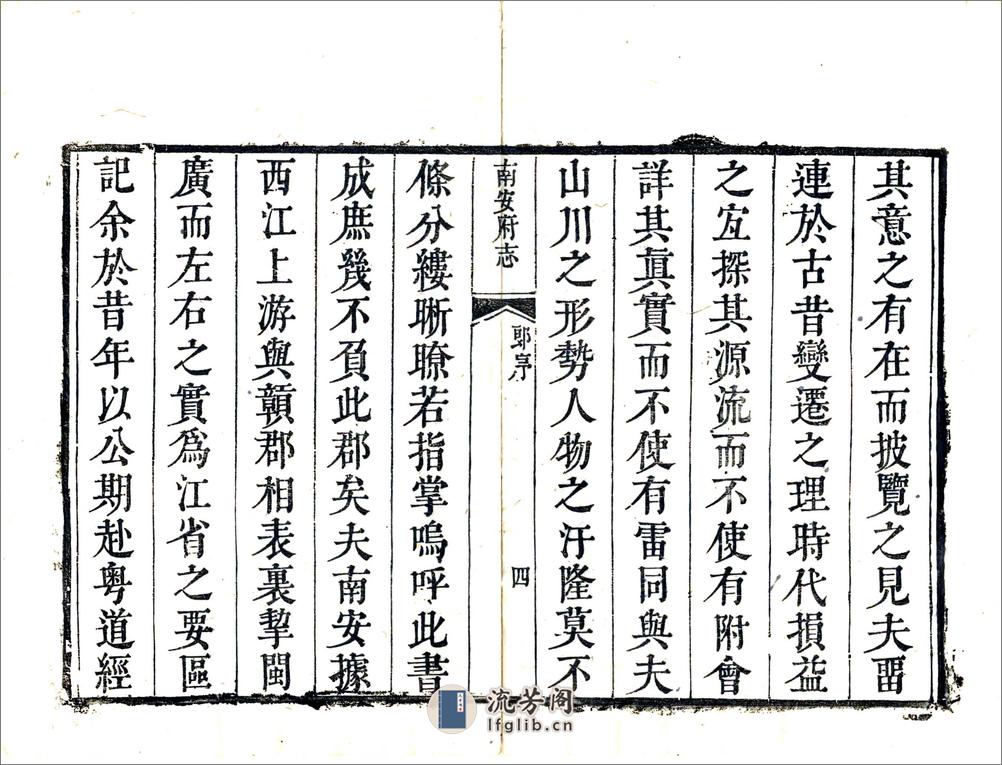 其意之有在而披覽之見夫畱
連於古昔變遷之理時代損益
之宐探其源流而不使有附會
詳其眞實而不使有雷同與夫
山川之形勢人物之汙隆莫不
南安府志
郎序
四
條分縷晣瞭若指掌嗚呼此書
成庶幾不負此郡矣夫南安據
西江上游與贛郡相表裏挈閩
廣而左右之實爲江省之要區
記余於昔年以公期赴粤道經
流芳阁
lfglib.cn